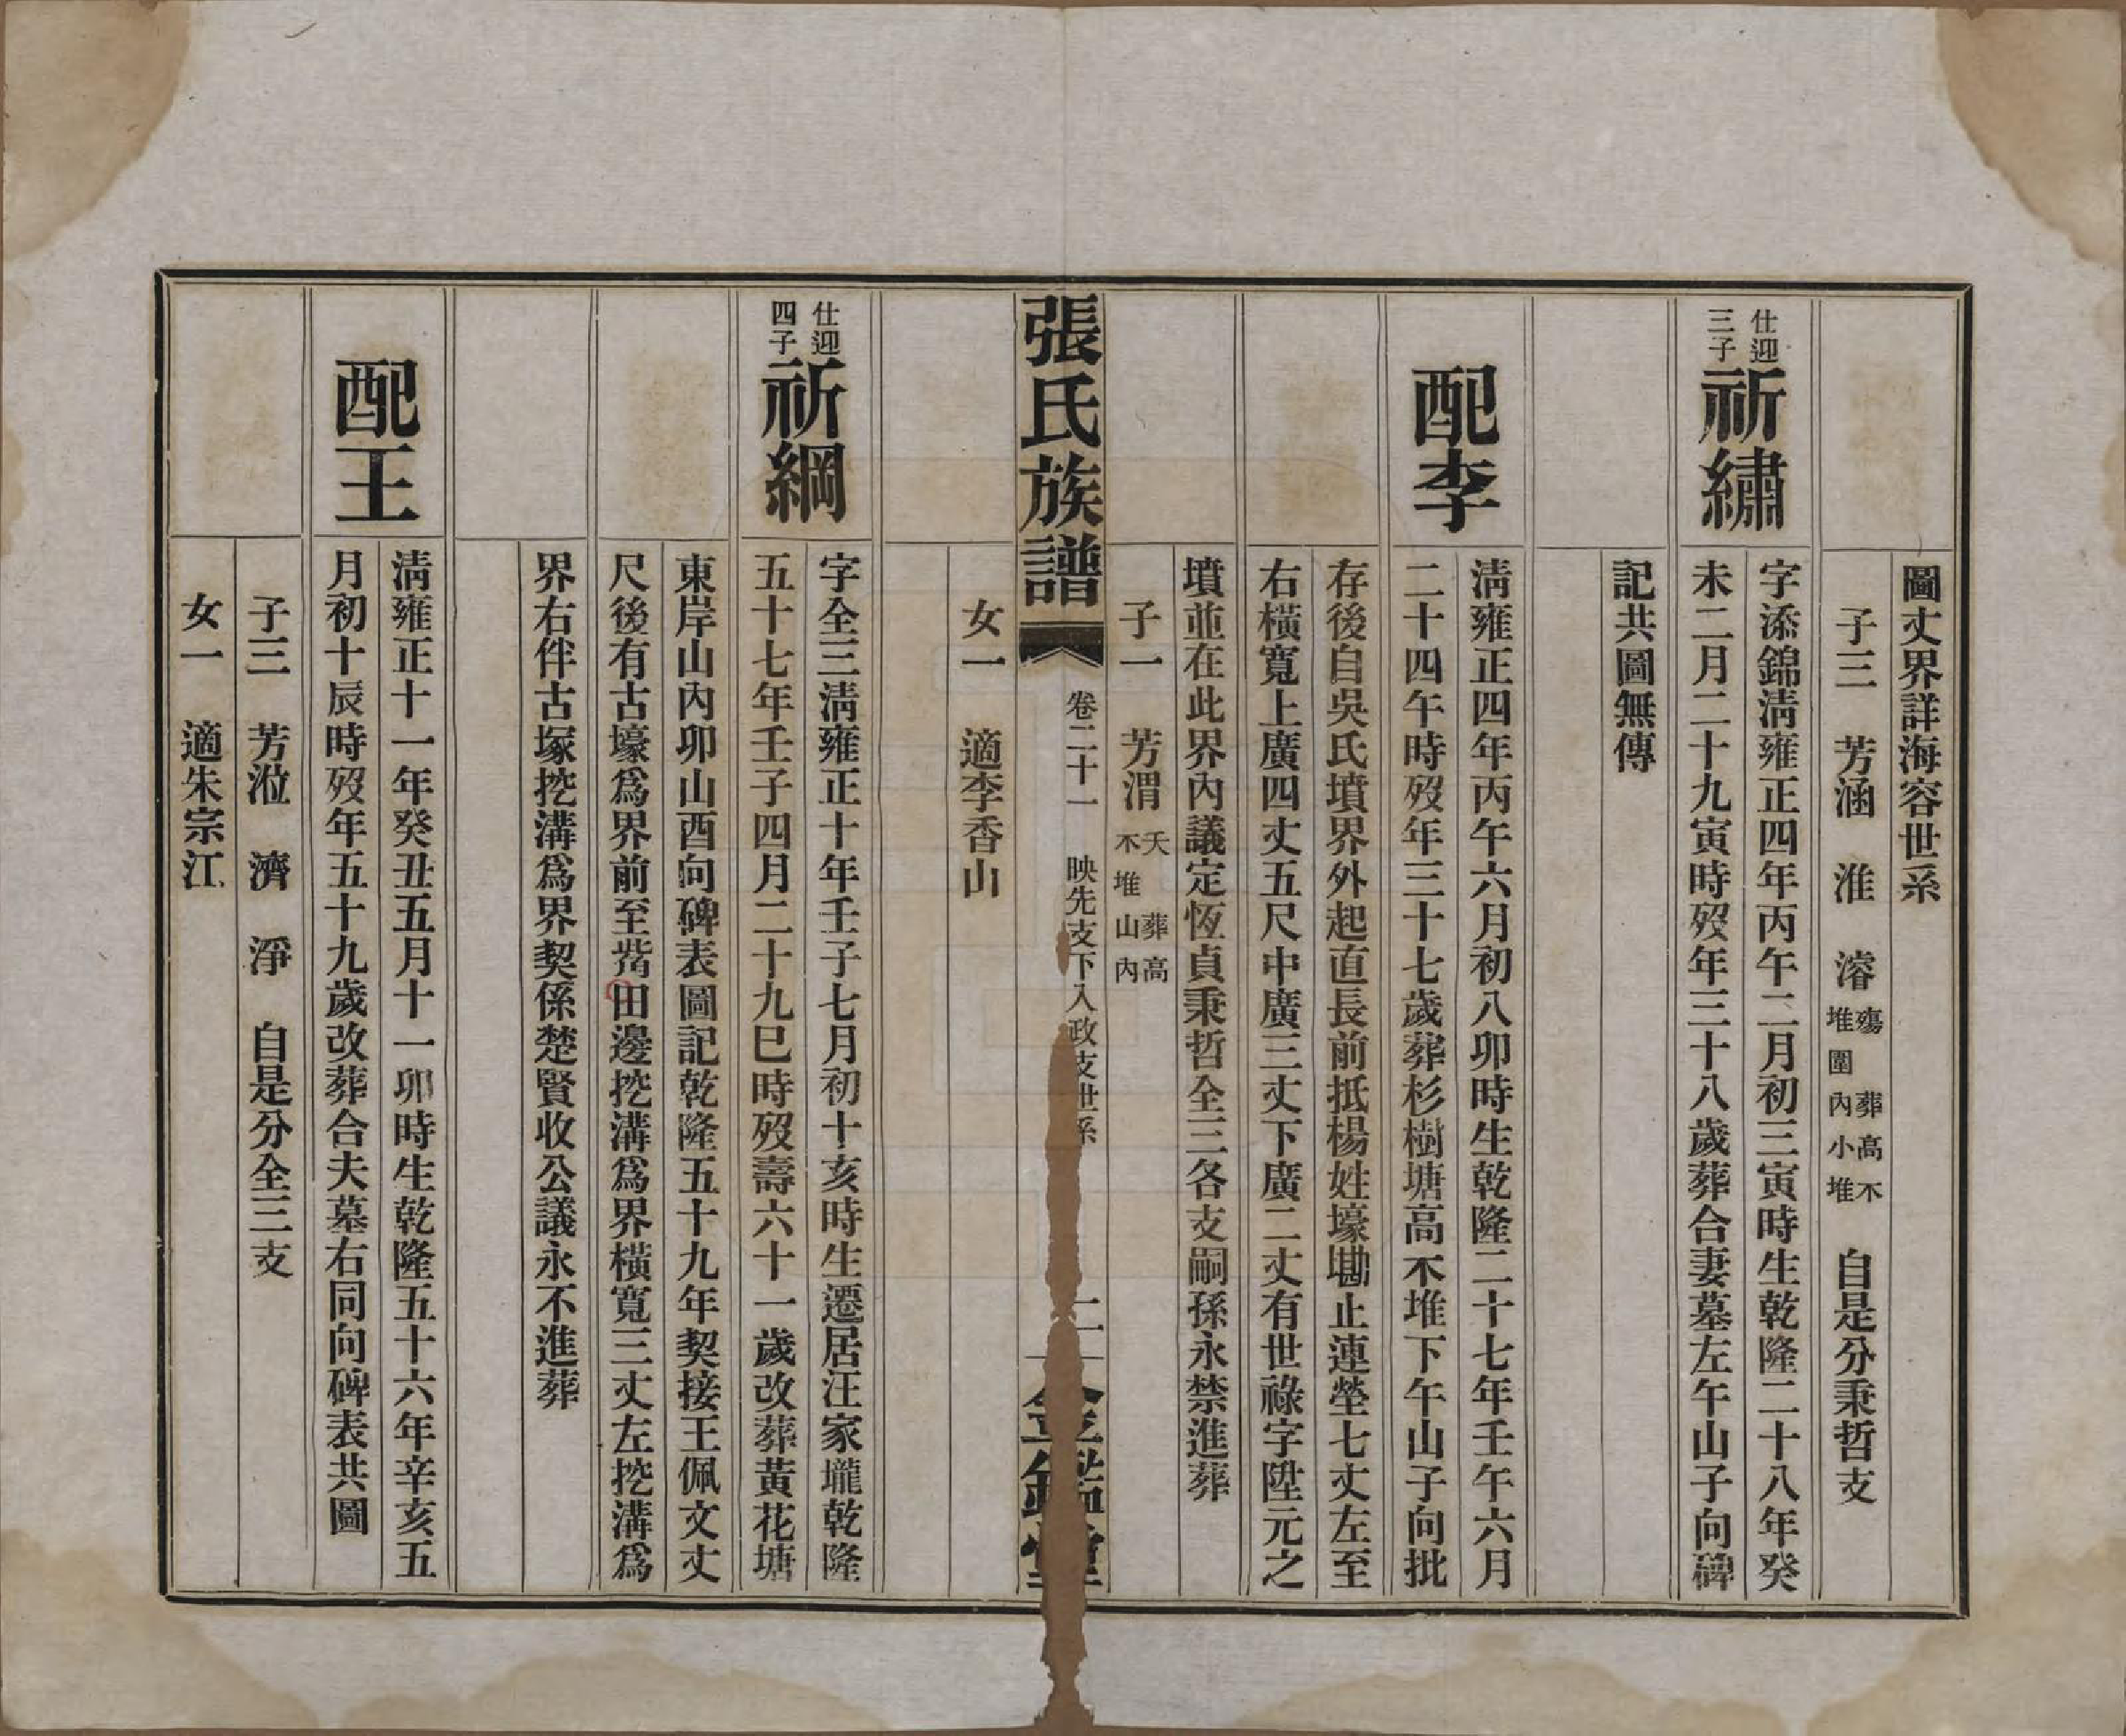 圖丈界詳海容世系
子三　芳涵　淮　濬 殤葬高不堆圍內小堆　自是分秉哲支
仕迎三子
祈繡
字添錦淸雍正四年丙午二月初三寅時生乾隆二十八年癸
未二月二十九寅時歿年三十八歲葬合妻墓左午山子向碑
記共圖無傳
配李
淸雍正四年丙午六月初八卯時生乾隆二十七年壬午六月
二十四午時歿年三十七歲葬杉樹塘高不堆下午山子向批
存後自吳氏墳界外起直長前抵楊姓壕勘止連塋七丈左至
右橫寬上廣四丈五尺中廣三丈下廣二丈有世祿字陞元之
墳並在此界內議定恆貞秉哲全三各支嗣孫永禁進葬
子一　芳渭 夭葬高不堆山內
張氏族譜
卷二十一　映先支下入政支世系
二
金鑑堂
女一　適李香山
仕迎四子
祈綱
字全三淸雍正十年壬子七月初十亥時生遷居汪家壠乾隆
五十七年壬子四月二十九巳時歿壽六十一歲改葬黃花塘
東岸山內卯山酉向碑表圖記乾隆五十九年契接王佩文丈
尺後有古壕爲界前至觜田邊挖溝爲界橫寬三丈左挖溝爲
界右伴古塚挖溝爲界契係楚賢收公議永不進葬
配王
淸雍正十一年癸丑五月十一卯時生乾隆五十六年辛亥五
月初十辰時歿年五十九歲改葬合夫墓右同向碑表共圖
子三　芳涖　濟　淨　自是分全三支
女一　適朱宗江